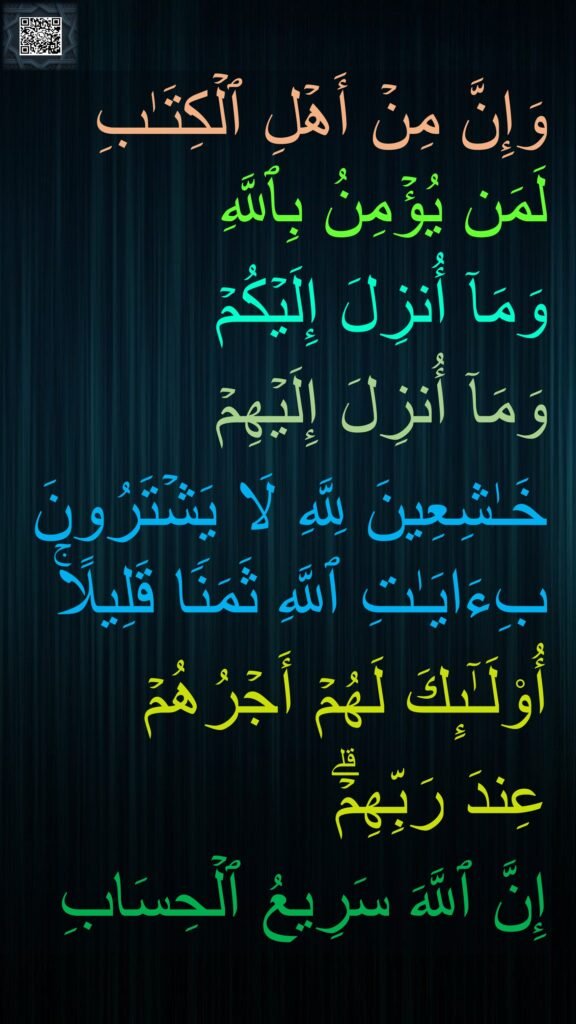 وَإِنَّ مِنْ أَهْلِ ٱلْكِتَـٰبِ
لَمَن يُؤْمِنُ بِٱللَّهِ
وَمَآ أُنزِلَ إِلَيْكُمْ
وَمَآ أُنزِلَ إِلَيْهِمْ
خَـٰشِعِينَ لِلَّهِ لَا يَشْتَرُونَ
بِـَٔايَـٰتِ ٱللَّهِ ثَمَنًا قَلِيلًا ۚ
أُو۟لَـٰٓئِكَ لَهُمْ أَجْرُهُمْ
عِندَ رَبِّهِمْ ۗ
إِنَّ ٱللَّهَ سَرِيعُ ٱلْحِسَابِ